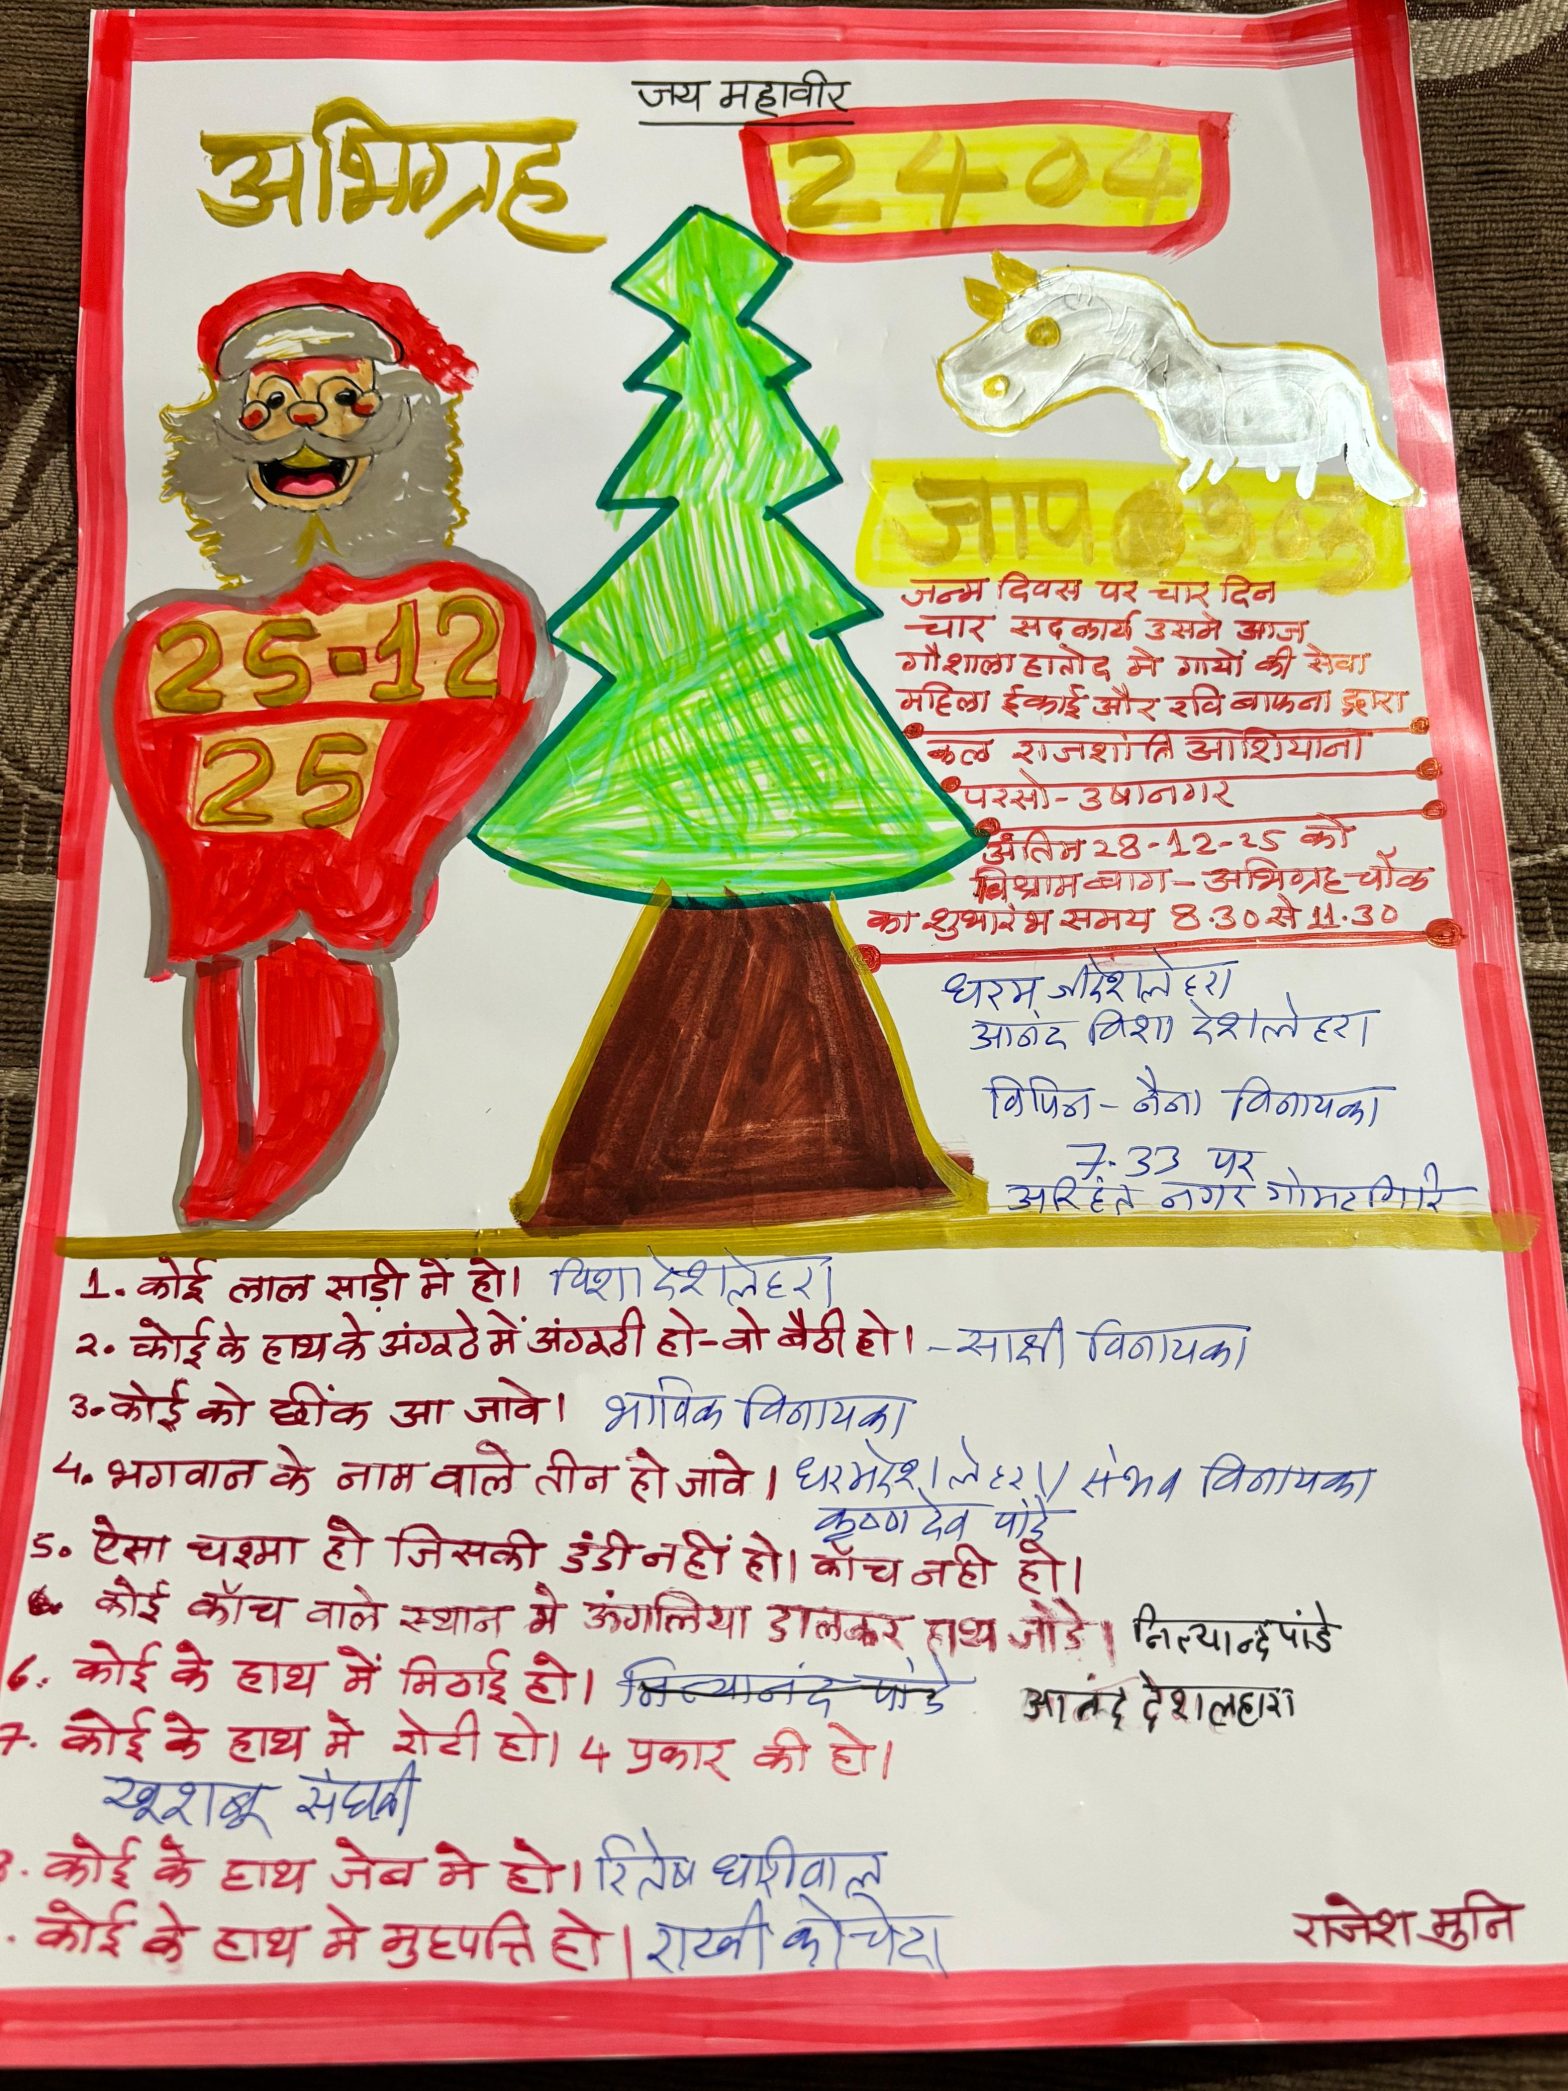 जय महावीर
अभिग्रह
2404
25-12
25
जाप
जन्म दिवस पर चार दिन
चार सदकार्य उसमे आज
गौशाला हातोद मे गायों की सेवा
महिला ईकाई और रवि बाफना द्वारा
कल राजशांति आशियाना
परसो-उषानगर
अंतिम 28-12-25 को
विश्राम बाग-अभिग्रह चौक
का शुभारंभ समय 8.30 से 11.30
धरम जी देशलेहरा
आनंद विशा देशलेहरा
विपिन-नैना विनायका
7.33 पर
अरिहंत नगर गोमटगिरि
1. कोई लाल साड़ी में हो। विशा देशलेहरा
2. कोई के हाथ के अंगूठे में अंगूठी हो-वो बैठी हो। -साक्षी विनायका
3. कोई को छींक आ जावे। भाविक विनायका
4. भगवान के नाम वाले तीन हो जावे। धरम देशलेहरा / संभव विनायका
कृष्णदेव पांडे
5. ऐसा चश्मा हो जिसकी डंडी नहीं हो। कॉच नही हो।
कोई कॉच वाले स्थान मे ऊंगलिया डालकर हाथ जोडे। नित्यान्द पांडे
6. कोई के हाथ में मिठाई हो। नित्यानंद पांडे आनंद देशलहारा
7. कोई के हाथ मे रोटी हो। 4 प्रकार की हो।
खूशबू संघवी
8. कोई के हाथ जेब मे हो। रितेष धारीवाल
. कोई के हाथ मे मुहपत्ति हो। राखी कोचेटा
राजेश मुनि